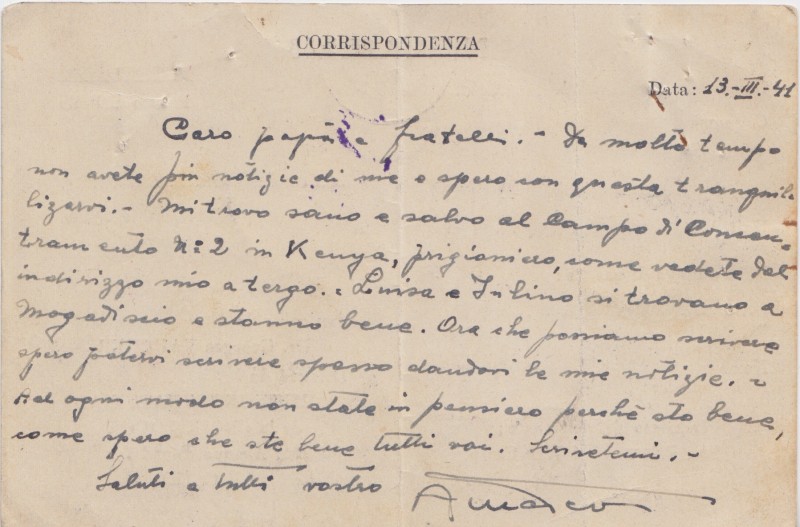 CORRISPONDENZA
Data: 13.-III.-41
Caro papà e fratelli. - Da molto tempo
non avete più notizie di me e spero con questa tranquil-
lizarvi. - Mi trovo sano e salvo al Campo di Concen-
tramento N:2 in Kenya, prigioniero, come vedete dal
indirizzo mio a tergo. - Luisa e Iulino si trovano a
Mogadiscio e stanno bene. Ora che possiamo scrivere
spero potervi scrivere spesso dandovi le mie notizie. -
Ad ogni modo non state in pensiero perchè sto bene,
come spero che ste bene tutti voi. Scrivetemi. -
Saluti a tutti vostro